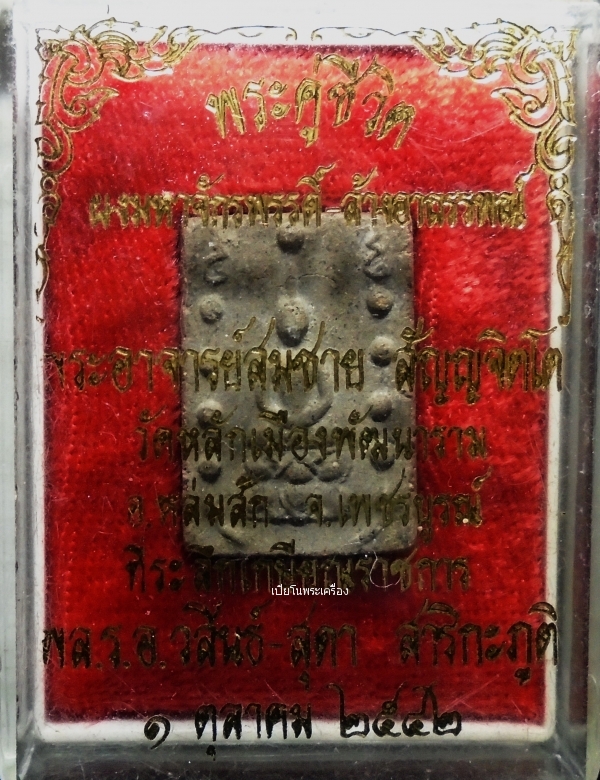 พระคู่ชีวิต
ผงมหาจักรพรรดิ์ ล้างอาถรรพณ์
พระอาจารย์สมชาย สัญญจิตโต
วัดหลักเมืองพัฒนาราม
อ.หล่มสัก จ.เพชรบูรณ์
ที่ระลึกเกษียณราชการ
เปียโนพระเครื่อง
พล.ร.อ.วสินธ์-สุดา สาริกะภูติ
๑ ตุลาคม ๒๕๔๒